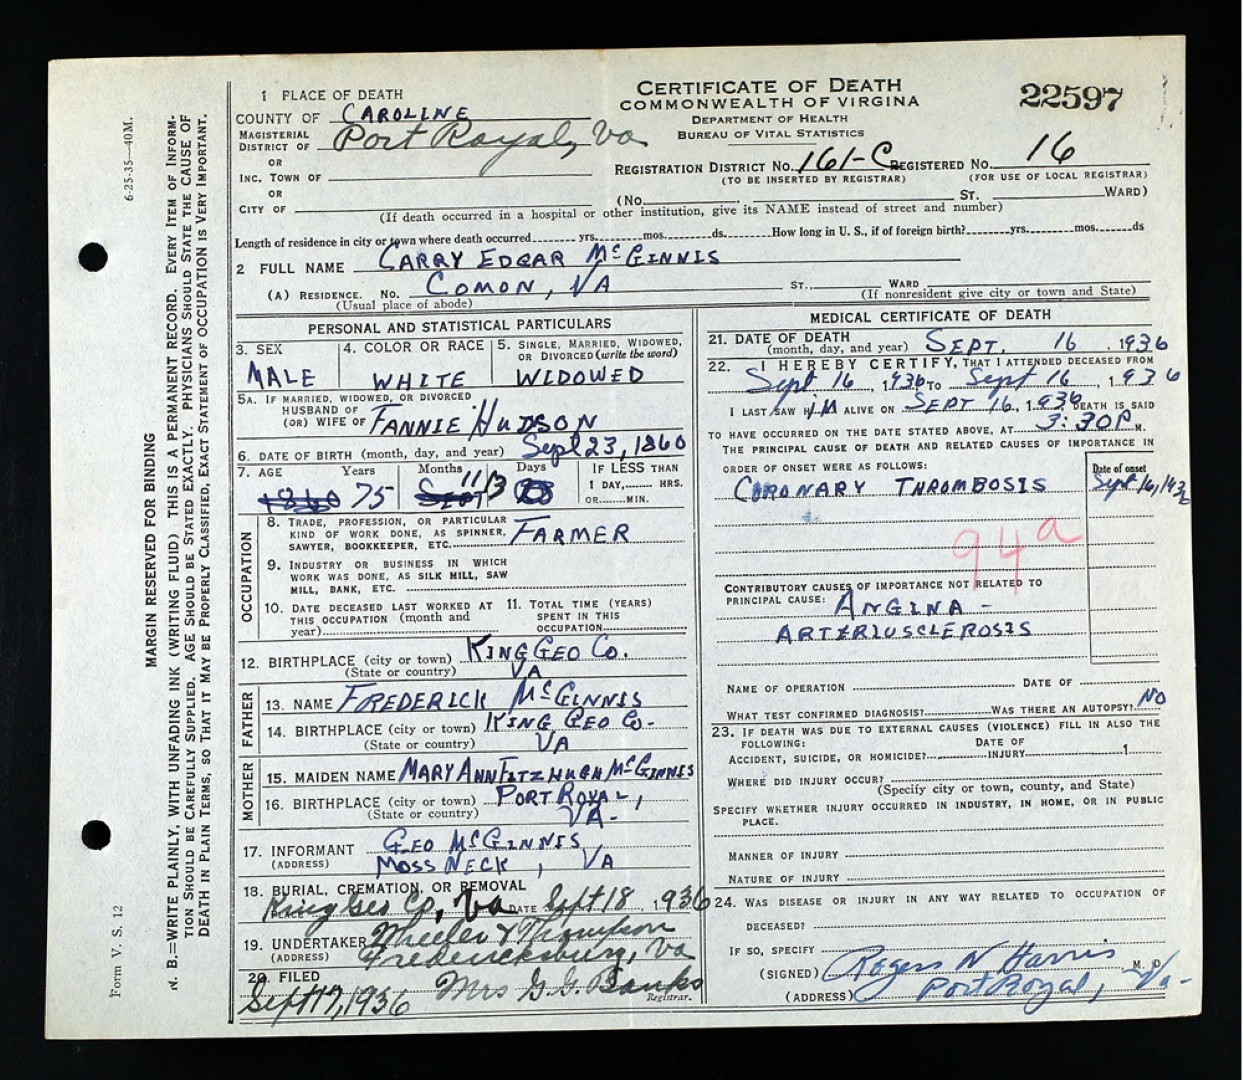 6-25-35—40M.
MARGIN RESERVED FOR BINDING
N. B.—WRITE PLAINLY, WITH UNFADING INK (WRITING FLUID) THIS IS A PERMANENT RECORD. EVERY ITEM OF INFORM-
TION SHOULD BE CAREFULLY SUPPLIED. AGE SHOULD BE STATED EXACTLY. PHYSICIANS SHOULD STATE THE CAUSE OF
DEATH IN PLAIN TERMS, SO THAT IT MAY BE PROPERLY CLASSIFIED. EXACT STATEMENT OF OCCUPATION IS VERY IMPORTANT.
Form V. S. 12
CERTIFICATE OF DEATH
COMMONWEALTH OF VIRGINA
DEPARTMENT OF HEALTH
BUREAU OF VITAL STATISTICS
22597
1 PLACE OF DEATH
COUNTY OF CAROLINE
MAGISTERIAL
DISTRICT OF Port Royal, Va
OR
INC. TOWN OF
OR
CITY OF
REGISTRATION DISTRICT NO. 161-C REGISTERED NO. 16
(TO BE INSERTED BY REGISTRAR) (FOR USE OF LOCAL REGISTRAR)
(No. ST. WARD)
(If death occurred in a hospital or other institution, give its NAME instead of street and number)
Length of residence in city or town where death occurred yrs. mos. ds. How long in U. S., if of foreign birth? yrs. mos. ds
2 FULL NAME CARRY EDGAR McGINNIS
(A) RESIDENCE. No. COMON, VA ST., WARD
(Usual place of abode) (If nonresident give city or town and State)
PERSONAL AND STATISTICAL PARTICULARS
3. SEX
MALE
4. COLOR OR RACE
WHITE
5. SINGLE, MARRIED, WIDOWED,
OR DIVORCED (write the word)
WIDOWED
5A. IF MARRIED, WIDOWED, OR DIVORCED
HUSBAND OF
(OR) WIFE OF FANNIE HUDSON
6. DATE OF BIRTH (month, day, and year) Sept 23, 1860
7. AGE Years Months Days
75 11
IF LESS THAN
1 DAY, HRS.
OR MIN.
OCCUPATION
8. TRADE, PROFESSION, OR PARTICULAR
KIND OF WORK DONE, AS SPINNER,
SAWYER, BOOKKEEPER, ETC. FARMER
9. INDUSTRY OR BUSINESS IN WHICH
WORK WAS DONE, AS SILK MILL, SAW
MILL, BANK, ETC.
10. DATE DECEASED LAST WORKED AT
THIS OCCUPATION (month and
year)
11. TOTAL TIME (YEARS)
SPENT IN THIS
OCCUPATION
12. BIRTHPLACE (city or town) KING GEO CO.
(State or country) VA
FATHER
13. NAME FREDERICK McGINNIS
14. BIRTHPLACE (city or town) KING GEO CO-
(State or country) VA
MOTHER
15. MAIDEN NAME MARY ANN FITZHUGH McGINNIS
16. BIRTHPLACE (city or town) PORT ROYAL,
(State or country) VA-
17. INFORMANT GEO McGINNIS
(ADDRESS) MOSS NECK, VA
18. BURIAL, CREMATION, OR REMOVAL
PLACE King Geo Co, Va DATE Sept 18, 1936
19. UNDERTAKER Wheeler & Thompson
(ADDRESS) Fredericksburg, Va
20. FILED
Sept 17, 1936 Mrs G.G. Banks
Registrar.
MEDICAL CERTIFICATE OF DEATH
21. DATE OF DEATH
(month, day, and year) SEPT. 16, 1936
22. I HEREBY CERTIFY, THAT I ATTENDED DECEASED FROM
Sept 16, 1936 TO Sept 16, 1936
I LAST SAW HIM ALIVE ON SEPT 16, 1936 DEATH IS SAID
TO HAVE OCCURRED ON THE DATE STATED ABOVE, AT 3:30P M.
THE PRINCIPAL CAUSE OF DEATH AND RELATED CAUSES OF IMPORTANCE IN
ORDER OF ONSET WERE AS FOLLOWS:
Date of onset
CORONARY THROMBOSIS Sept 16, 1936
94a
CONTRIBUTORY CAUSES OF IMPORTANCE NOT RELATED TO
PRINCIPAL CAUSE: ANGINA -
ARTERIUSCLEROSIS
NAME OF OPERATION DATE OF
WHAT TEST CONFIRMED DIAGNOSIS? WAS THERE AN AUTOPSY? NO
23. IF DEATH WAS DUE TO EXTERNAL CAUSES (VIOLENCE) FILL IN ALSO THE
FOLLOWING: DATE OF
ACCIDENT, SUICIDE, OR HOMICIDE? INJURY 1
WHERE DID INJURY OCCUR?
(Specify city or town, county, and State)
SPECIFY WHETHER INJURY OCCURRED IN INDUSTRY, IN HOME, OR IN PUBLIC
PLACE.
MANNER OF INJURY
NATURE OF INJURY
24. WAS DISEASE OR INJURY IN ANY WAY RELATED TO OCCUPATION OF
DECEASED?
IF SO, SPECIFY
(SIGNED) Rogers N Harris M. D.
(ADDRESS) Port Royal, Va-